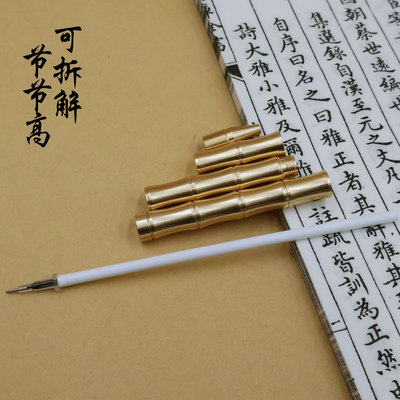 可拆解
节节高
朝蔡世遠編
集選錄自漢至元之文凡
自序曰名之曰雅正者其辭雅其
詩大雅小雅及爾
註疏皆訓為正然